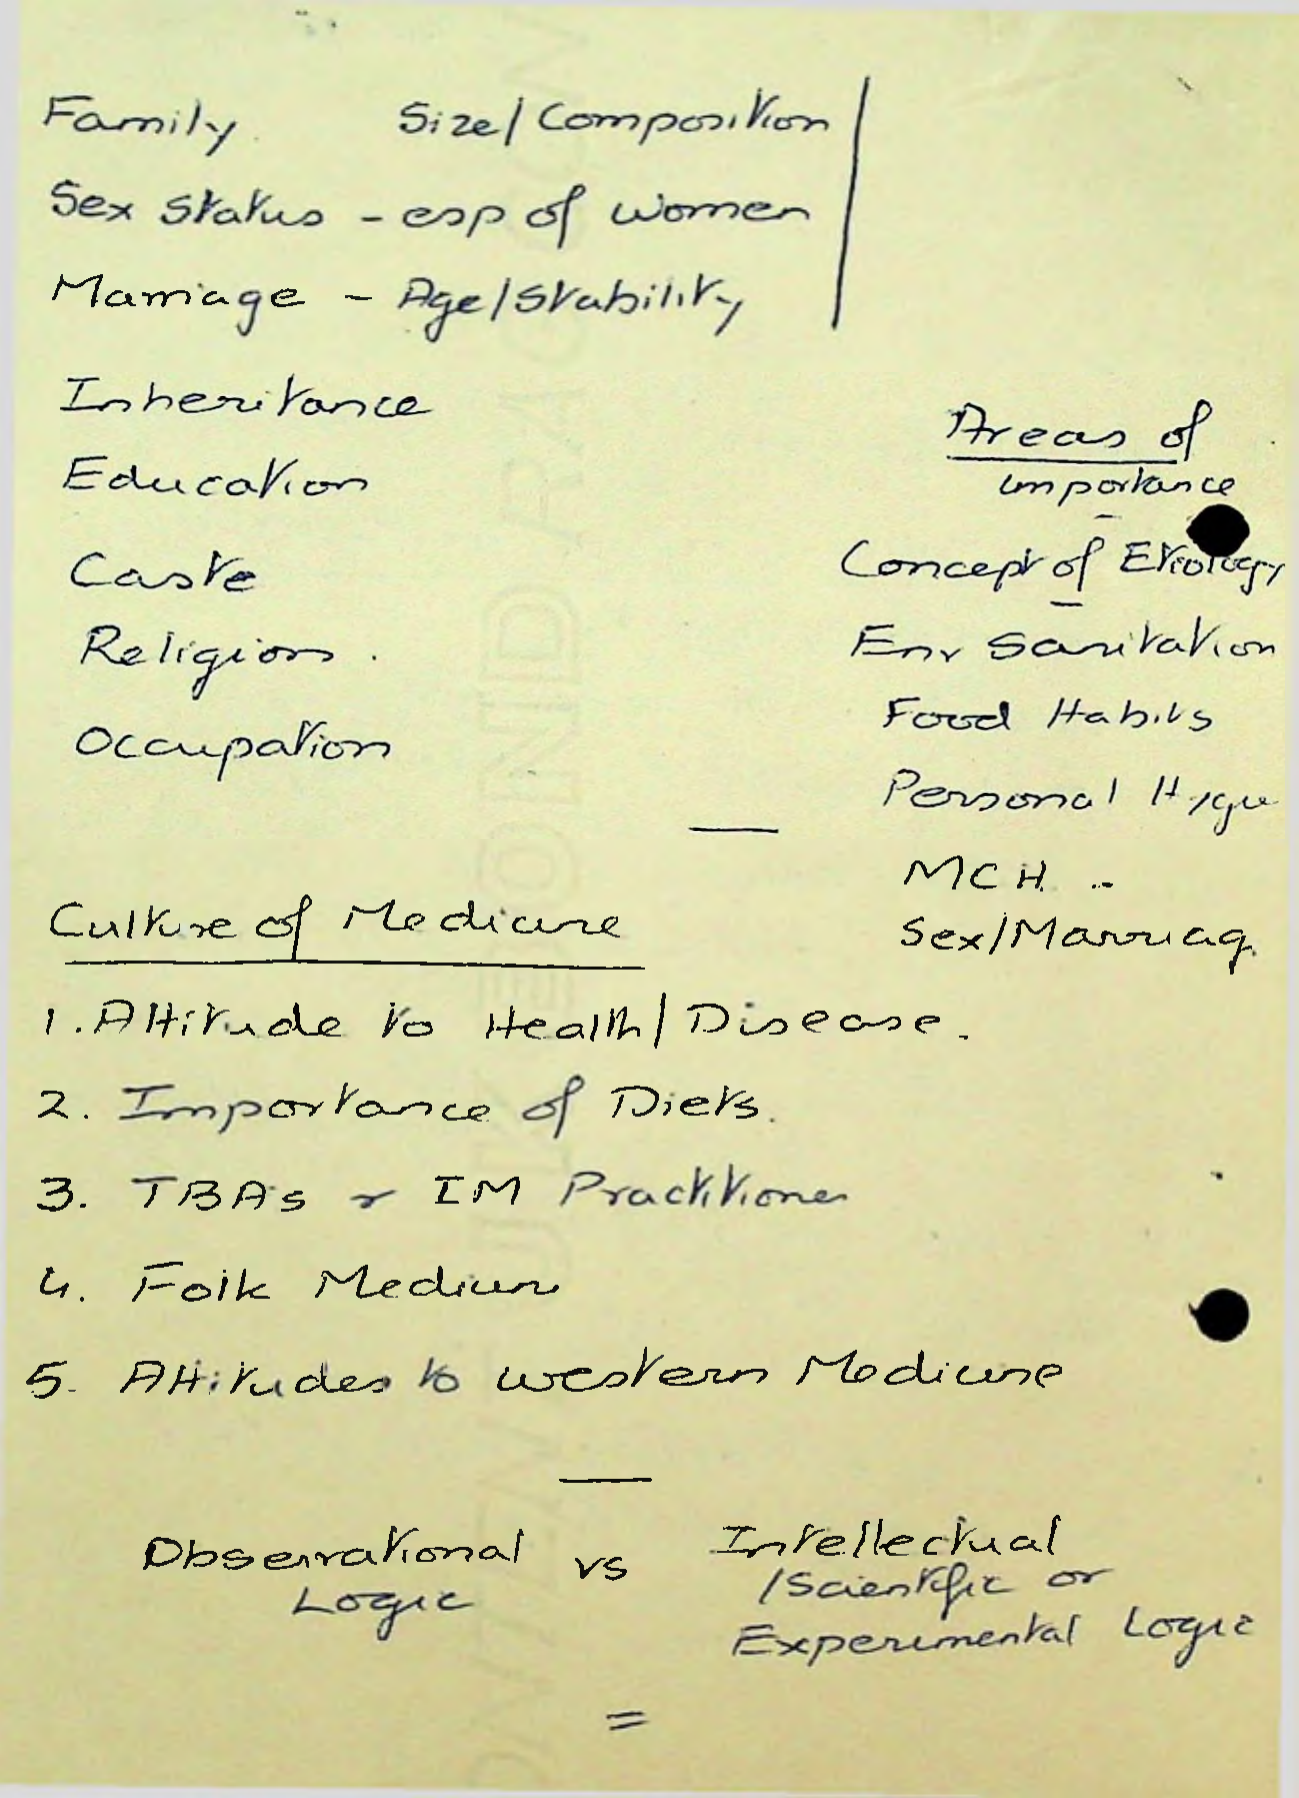 Family Size/Composition
Sex Status - esp of women
Marriage - Age/Stability
Inheritance
Education
Caste
Religion.
Occupation
Areas of
importance
Concept of Etiology
Env Sanitation
Food Habits
Personal Hygie
MCH ..
Sex/Marriag.
Culture of Medicine
1. Attitude to Health/Disease.
2. Importance of Diets.
3. TBAs & IM Practitioner
4. Folk Medicine
5. Attitudes to western Medicine
Observational vs Intellectual
Logic /Scientific or
Experimental Logic